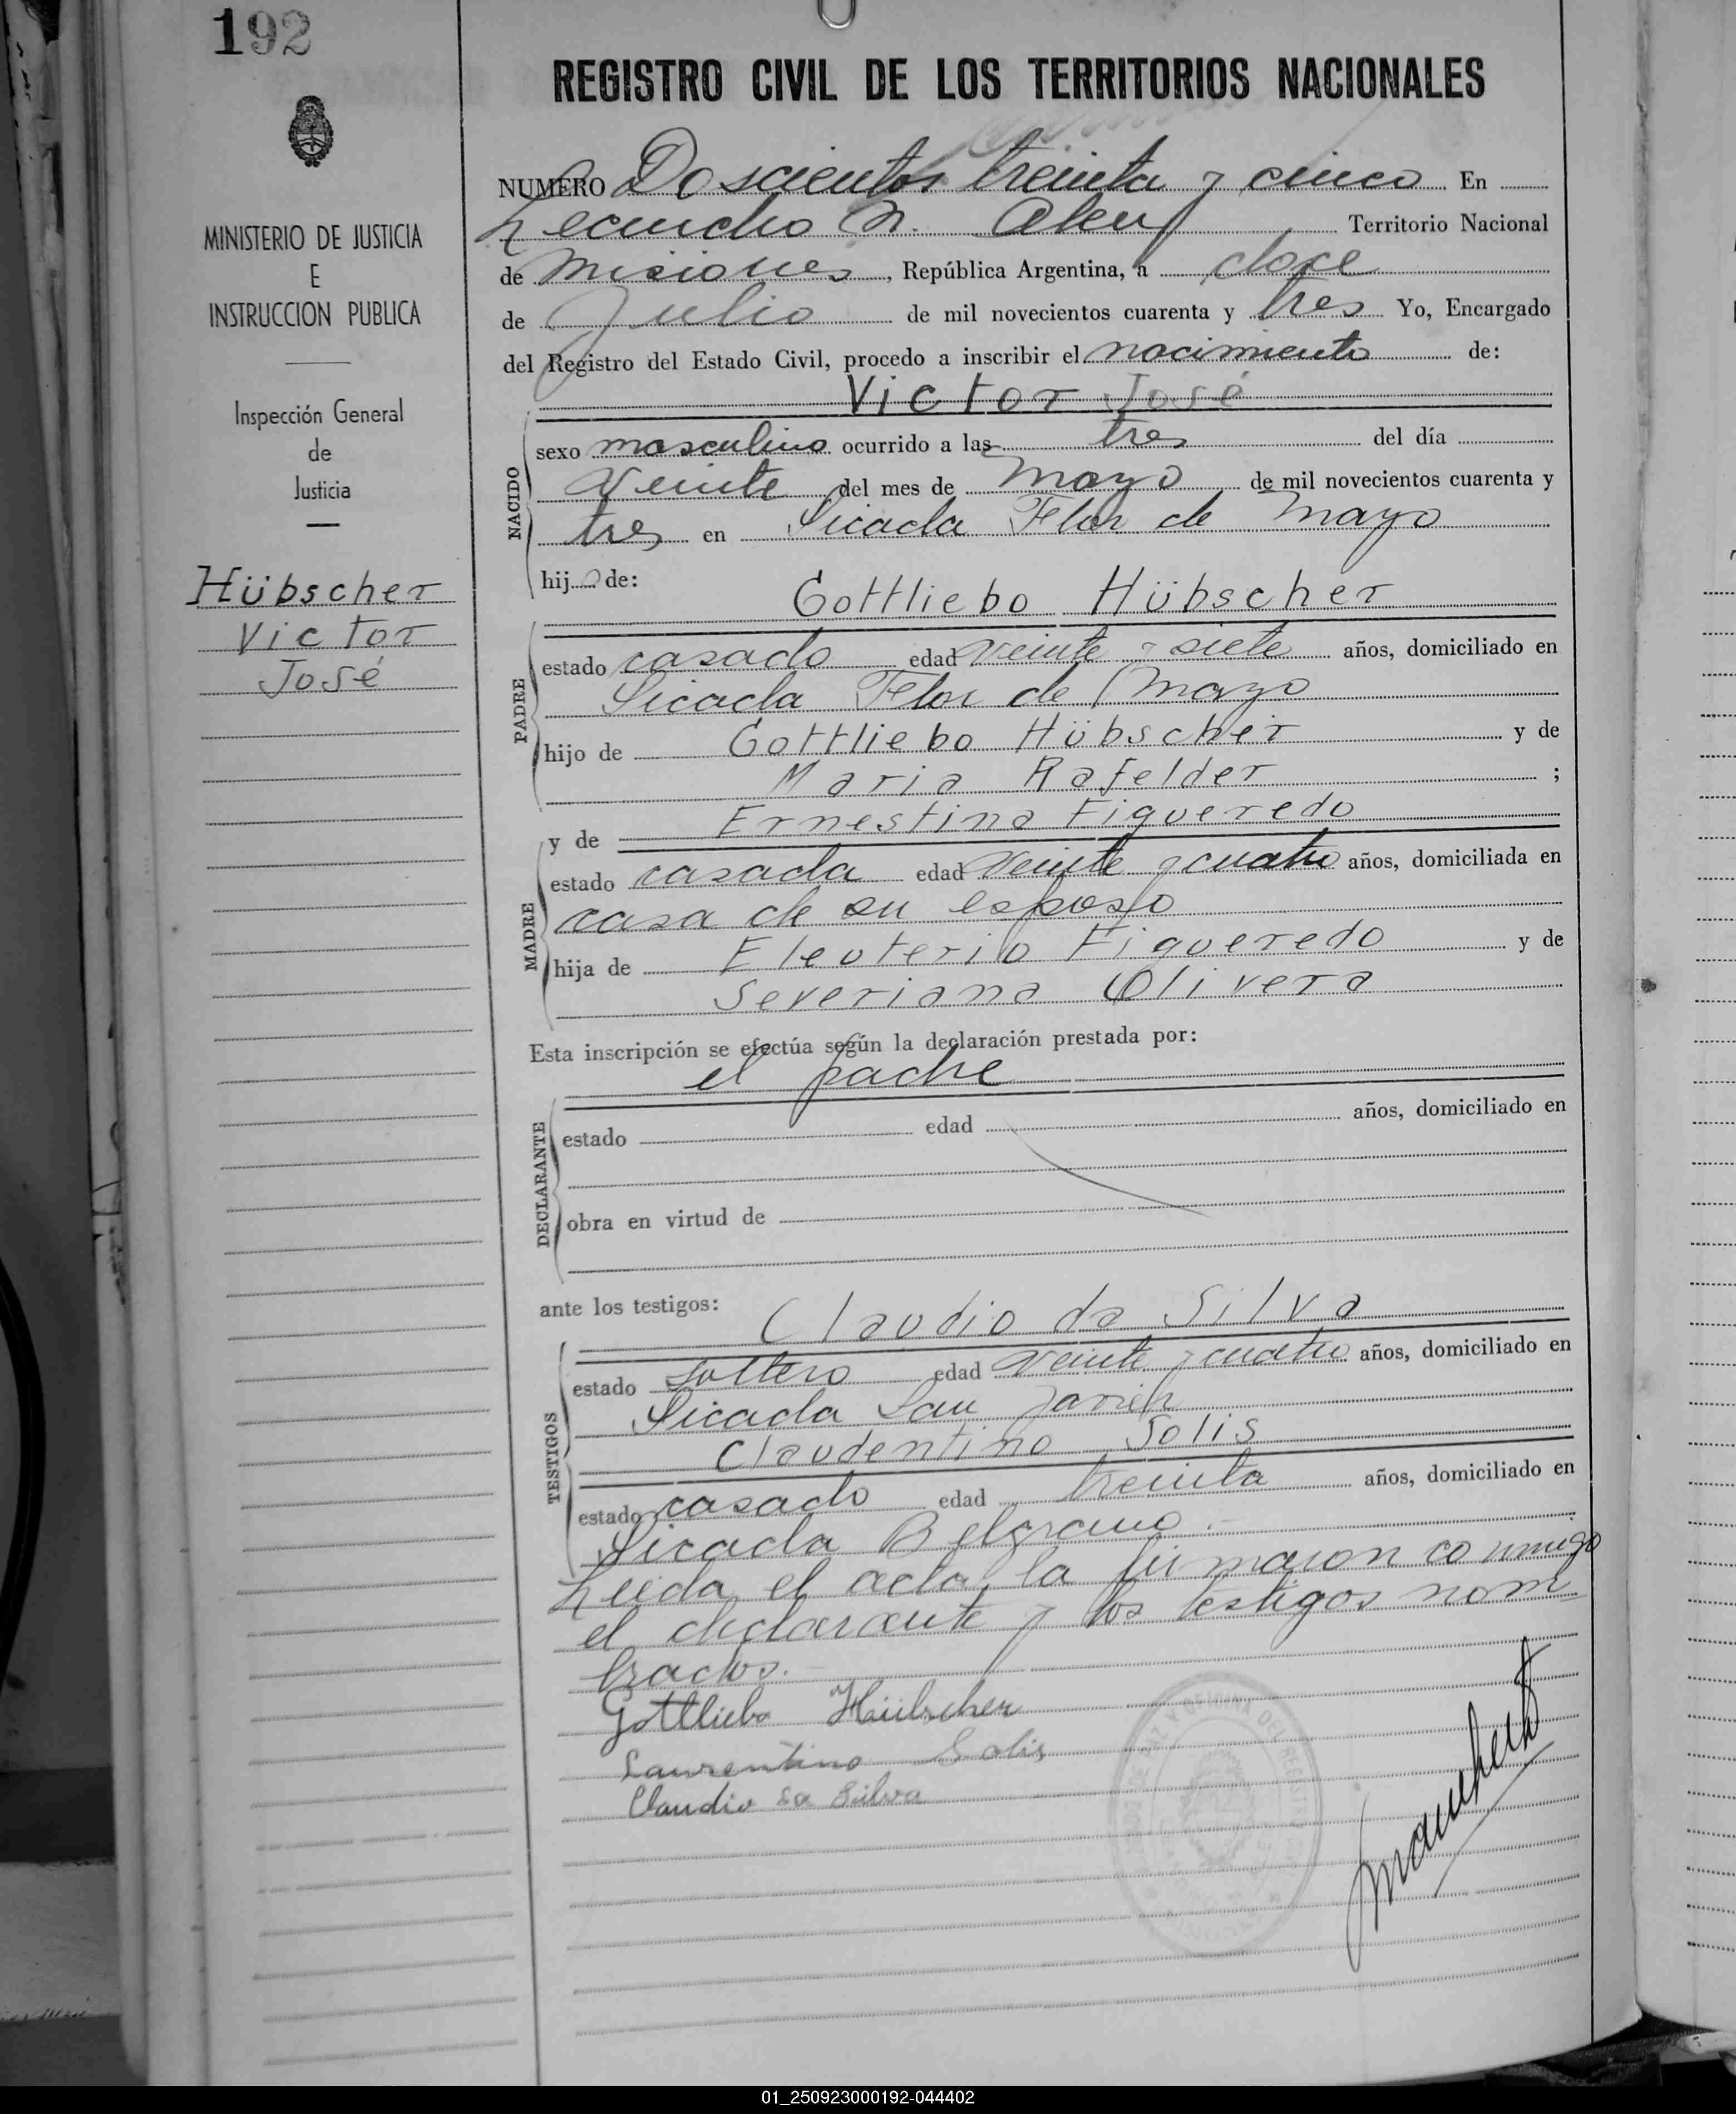 192
REGISTRO CIVIL DE LOS TERRITORIOS NACIONALES
MINISTERIO DE JUSTICIA
E
INSTRUCCION PUBLICA
Inspección General
de
Justicia
Hübscher
Victor
José
NUMERO Doscientos treinta y cinco En
Leandro N. Alem Territorio Nacional
de Misiones, República Argentina, a doce
de Julio de mil novecientos cuarenta y tres Yo, Encargado
del Registro del Estado Civil, procedo a inscribir el nacimiento de:
Victor José
NACIDO
sexo masculino ocurrido a las tres del día
veinte del mes de mayo de mil novecientos cuarenta y
tres en Picada Flor de Mayo
hijo de:
Gottliebo Hübscher
PADRE
estado casado edad veinte y siete años, domiciliado en
Picada Flor de Mayo
hijo de Gottliebo Hübscher y de
Maria Rafelder ;
y de Ernestina Figueredo
MADRE
estado casada edad veinte y cuatro años, domiciliada en
casa de su esposo
hija de Eleuterio Figueredo y de
Severiana Olivera
Esta inscripción se efectúa según la declaración prestada por:
el padre
DECLARANTE
estado edad años, domiciliado en
obra en virtud de
ante los testigos: Claudio da Silva
TESTIGOS
estado soltero edad veinte y cuatro años, domiciliado en
Picada San
Claudentino Solis
estado casado edad treinta años, domiciliado en
Picada Belgrano.-
Leida el acta, la firmaron conmigo
el declarante y los testigos nom-
brados.
Gottliebo Hübscher
Laurentino Solis
Claudio da Silva
01_250923000192-044402